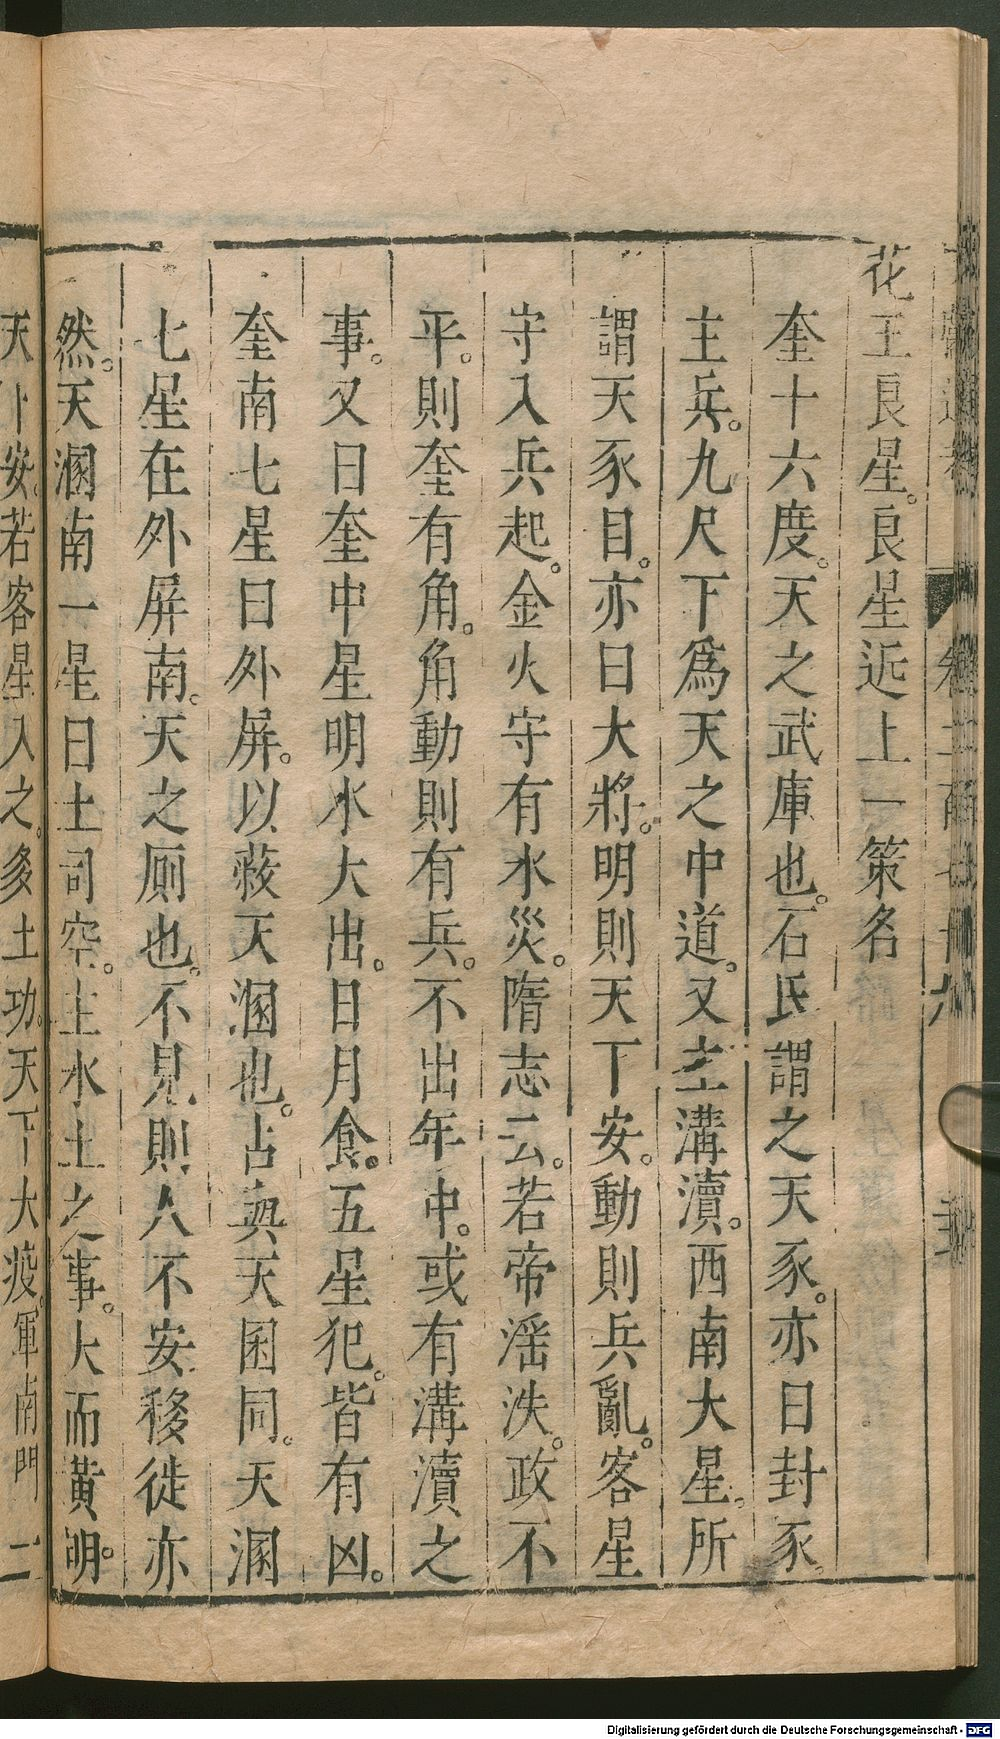 花王良星。良星近上一策名
奎十六度。天之武庫也。石氏謂之天豕。亦曰封豕。
主兵。九尺下爲天之中道。又主溝瀆。西南大星。所
謂天豕目。亦曰大將。明則天下安。動則兵亂。客星
守入兵起。金火守有水災。隋志云。若帝滛泆。政不
平。則奎有角。角動則有兵。不出年中。或有溝瀆之
事。又曰奎中星明水大出。日月食。五星犯。皆有凶。
奎南七星曰外屏。以蔽天溷也。占與天囷同。天溷
七星在外屏南。天之厠也。不見則人不安移徙亦
然。天溷南一星曰土司空。主水土之事。大而黃明。
天下安。若客星入之。多土功。天下大疫。軍南門一
Digitalisierung gefördert durch die Deutsche Forschungsgemeinschaft - DFG